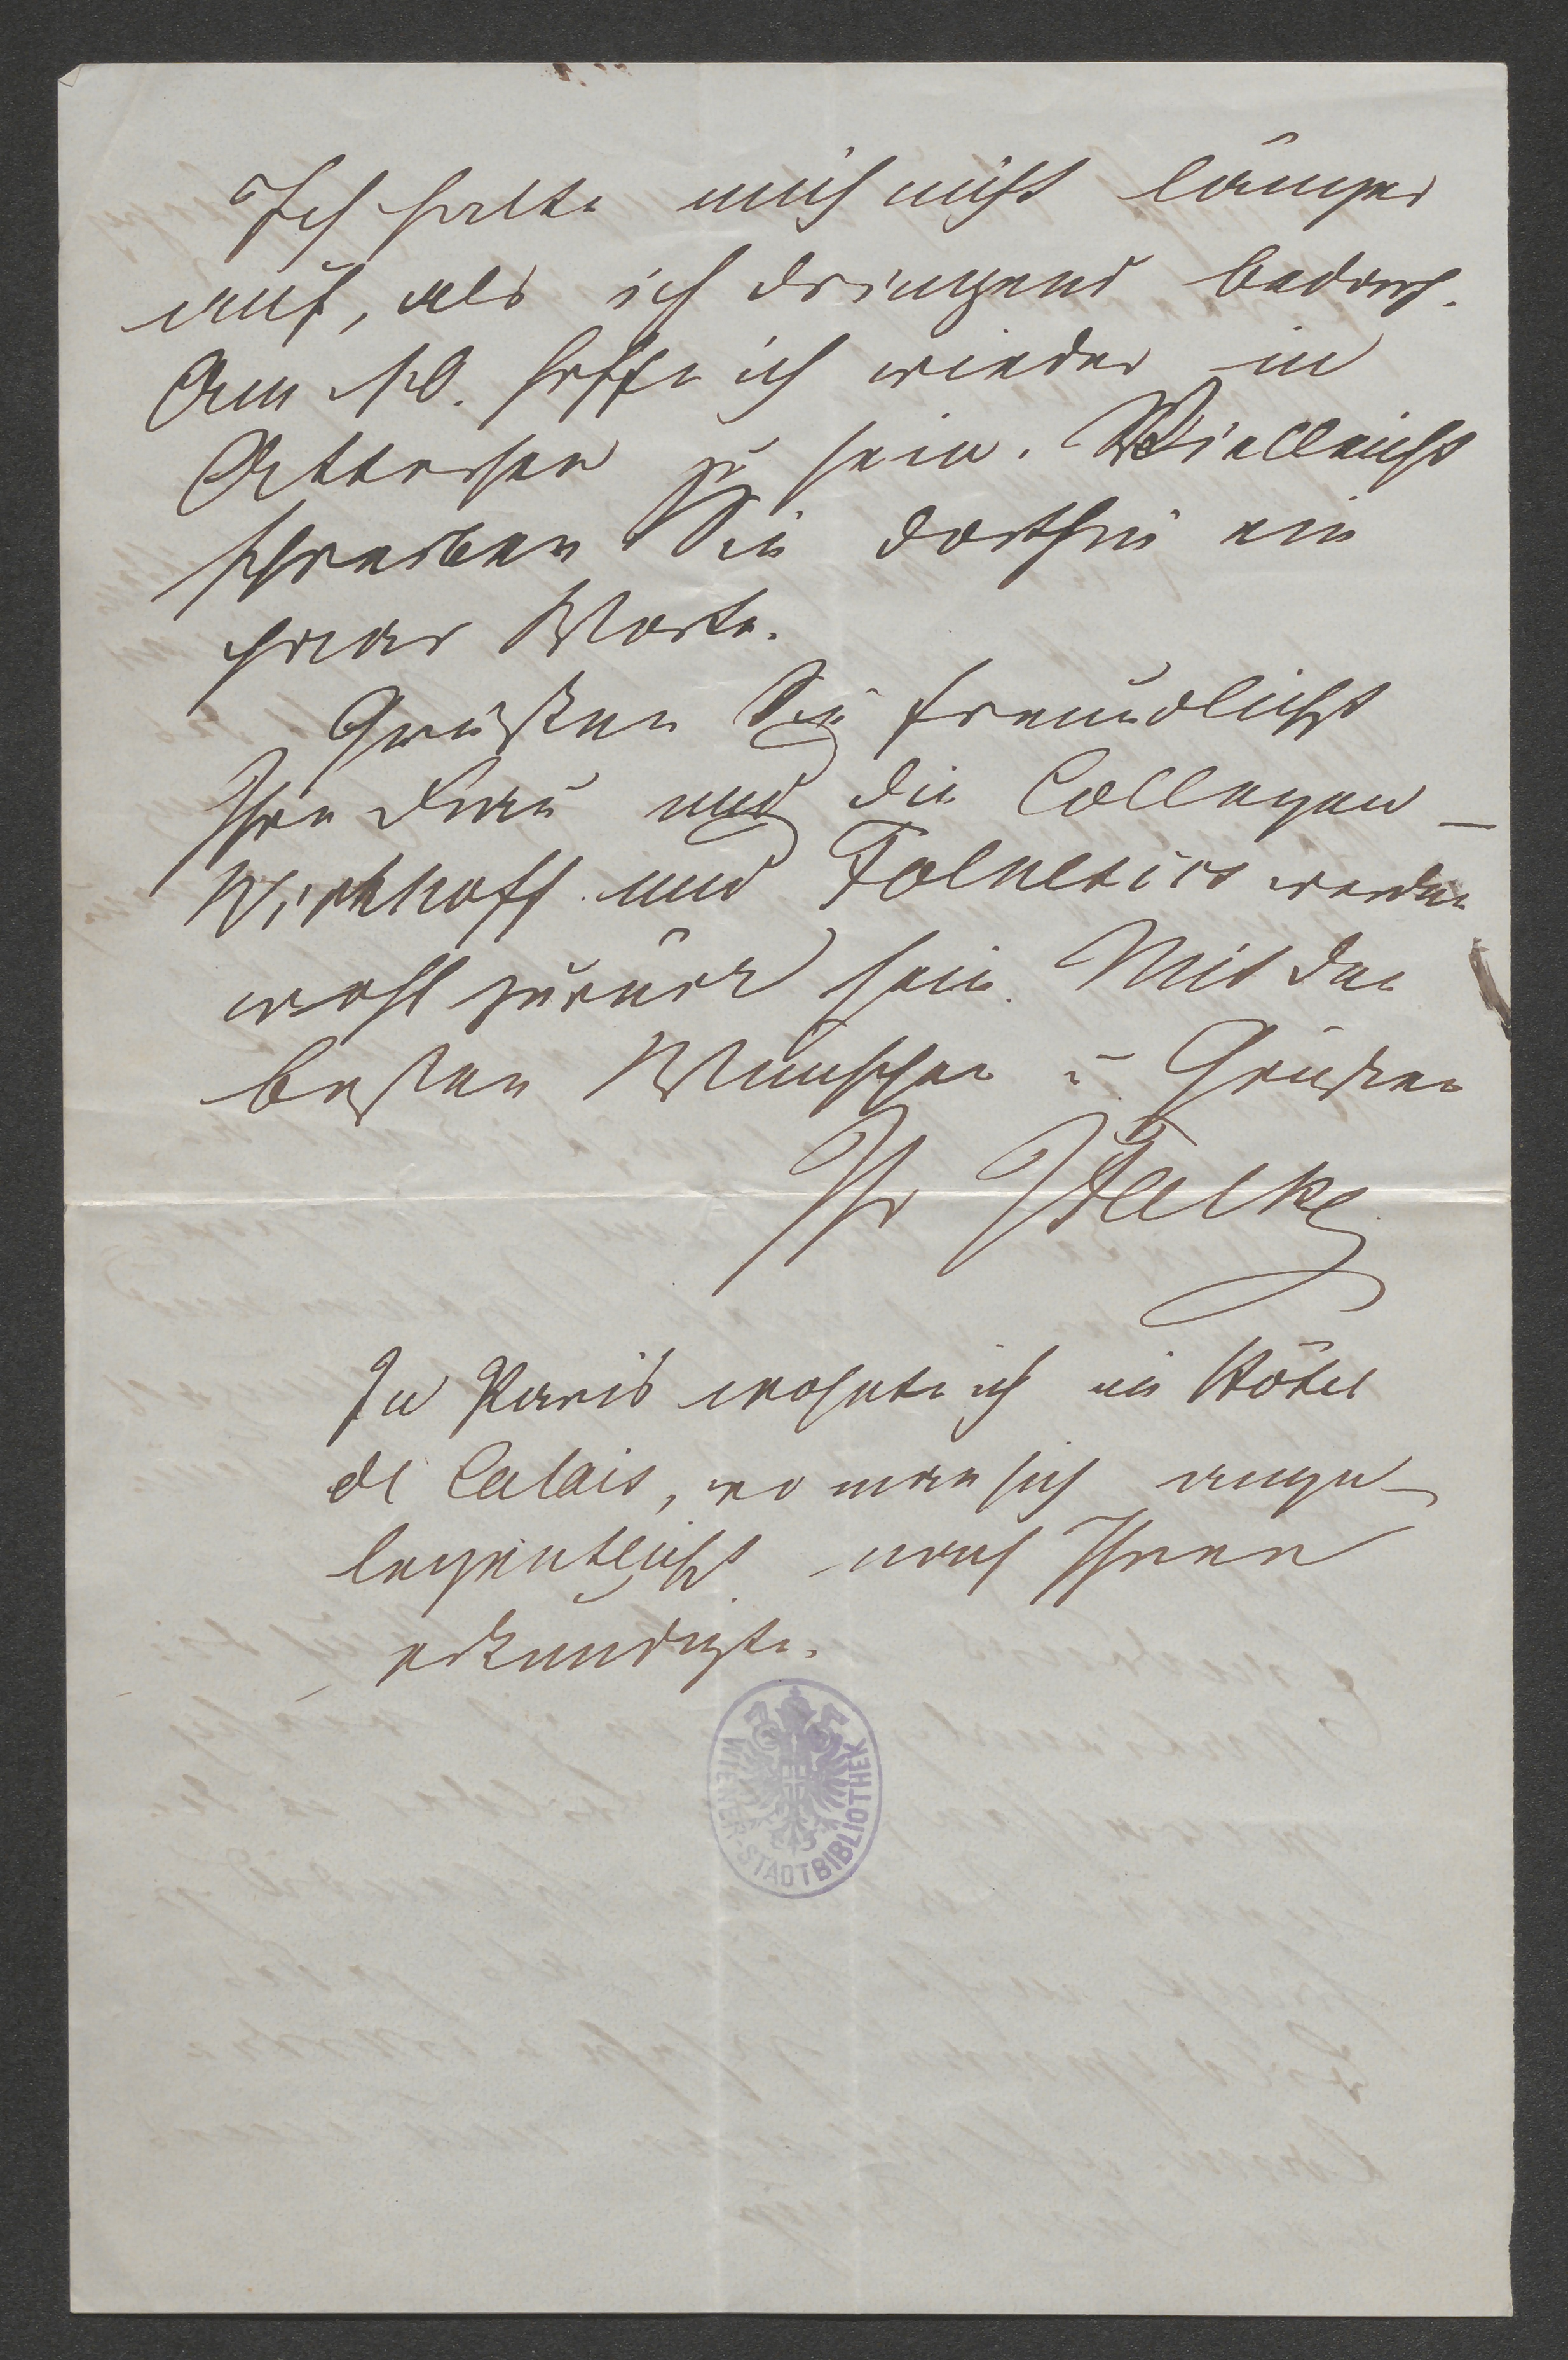 Ich halte mich nicht länger
auf, als ich dringend bedarf.
Am 10. hoffe ich wieder in
Attersee zu sein. Vielleicht
schreiben Sie dorthin ein
paar Worte.
Grüßen Sie freundlichst
Ihre Frau und die Collegen –
Wickhoff und Folnesics werden
wohl zurück sein. Mit den
besten Wünschen u Grüßen
Ihr JFalke
In Paris wohnte ich im Hôtel
de Calais, wo man sich ange-
legentlichst nach Ihnen
erkundigte.
WIENER-STADTBIBLIOTHEK